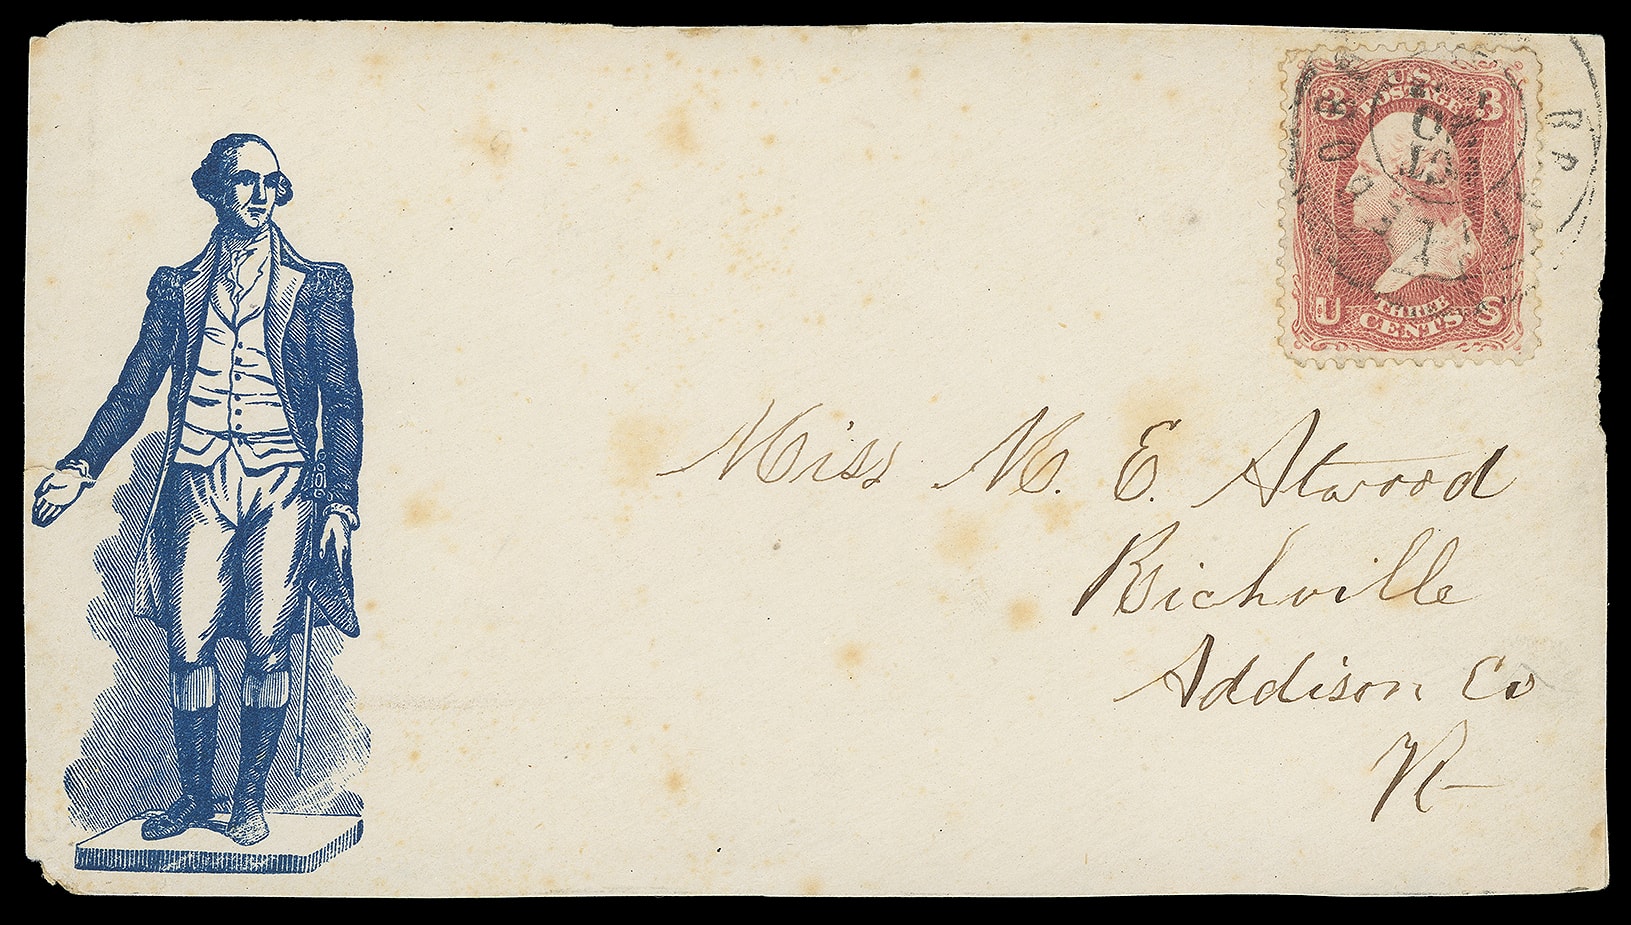 U.S.
POSTAGE
3 3
U THREE S
CENTS
OCT
1
Miss M. E. Atwood
Richville
Addison Co